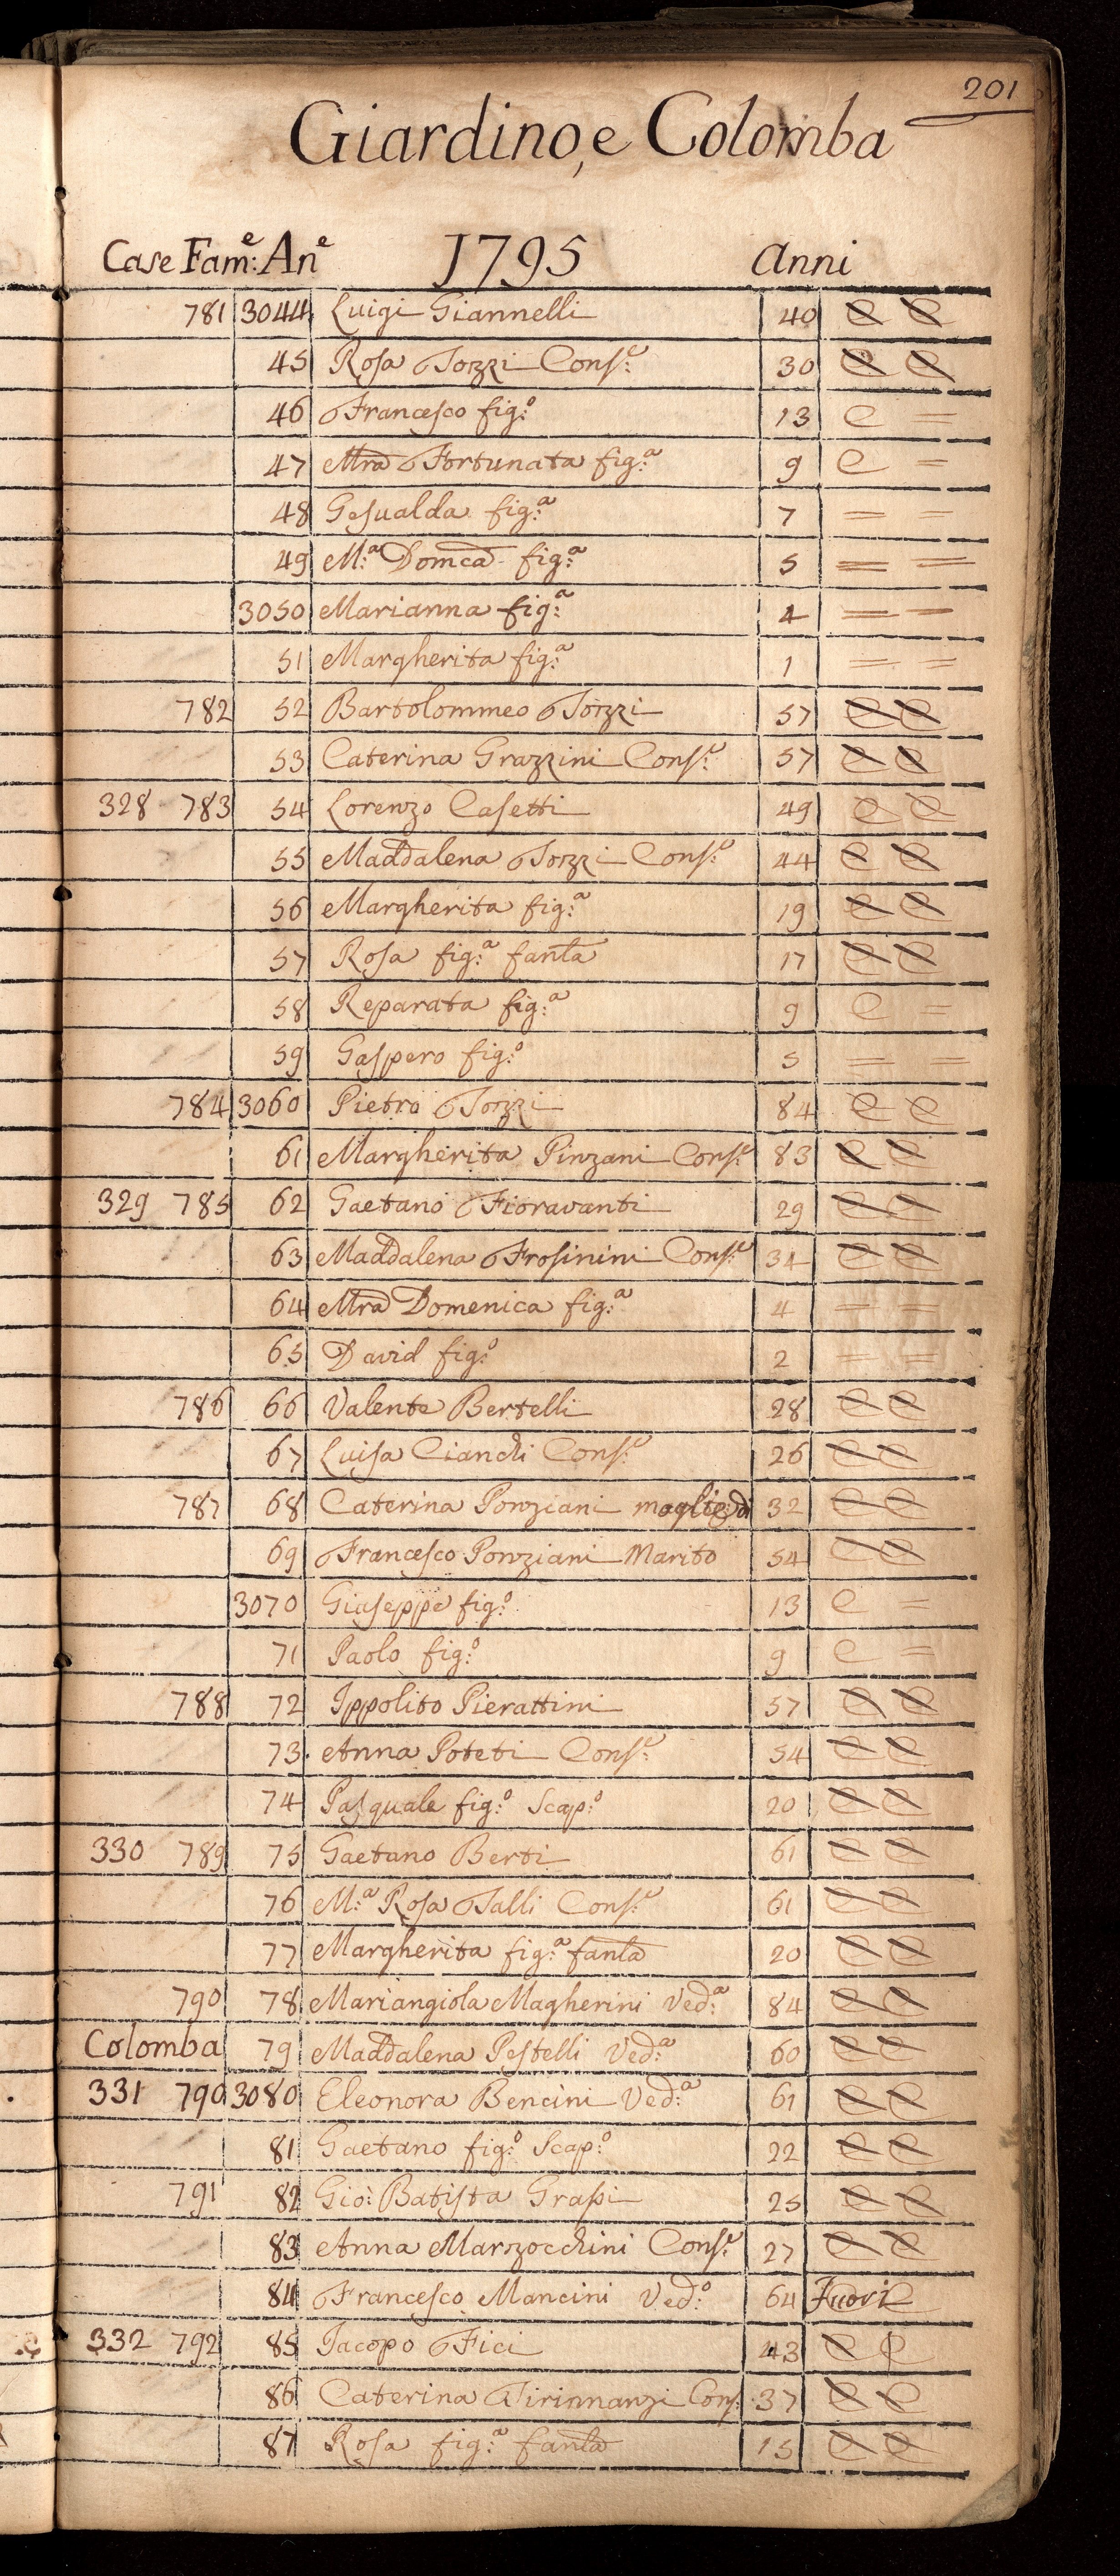 201
Giardino, e Colomba
Case Fam:e An.e 1795 Anni
781 3044 Luigi Giannelli 40 C C
45 Rosa Tozzi Cons:e 30 C C
46 Francesco fig:o 13 C =
47 Mra Fortunata fig:a 9 C =
48 Gesualda fig:a 7 = =
49 M:a Domca fig:a 5 = =
3050 Marianna fig:a 4 = =
51 Margherita fig:a 1 = =
782 52 Bartolommeo Tozzi 57 C C
53 Caterina Grazzini Cons:e 57 C C
328 783 54 Lorenzo Casetti 49 C C
55 Maddalena Tozzi Cons:e 44 C C
56 Margherita fig:a 19 C C
57 Rosa fig:a fanla 17 C C
58 Reparata fig:a 9 C =
59 Gaspero fig:o 5 = =
784 3060 Pietro Tozzi 84 C C
61 Margherita Pinzani Cons:e 83 C C
329 785 62 Gaetano Fioravanti 29 C C
63 Maddalena Frosinini Cons:e 34 C C
64 Mra Domenica fig:a 4 = =
65 David fig:o 2 = =
786 66 Valente Bertelli 28 C C
67 Luisa Cianchi Cons:e 26 C C
787 68 Caterina Ponziani moglie di 32 C C
69 Francesco Ponziani Marito 54 C C
3070 Giuseppe fig:o 13 C
71 Paolo fig:o 9 C =
788 72 Ippolito Pierattini 57 C C
73. Anna Poteti Cons:e 54 C C
74 Pasquale fig:o Scap:o 20 C C
330 789 75 Gaetano Berti 61 C C
76 M:a Rosa Talli Cons:e 61 C C
77 Margherita fig:a fanla 20 C C
790 78 Mariangiola Magherini Ved:a 84 C C
Colomba 79 Maddalena Pestelli Ved:a 60 C C
331 790 3080 Eleonora Bencini Ved:a 61 C C
81 Gaetano fig:o Scap:o 22 C C
791 82 Gio: Batista Grassi 25 C C
83 Anna Marzocchini Cons:e 27 C C
84 Francesco Mancini Ved:o 64 Fuori
332 792 85 Jacopo Fici 43 C C
86 Caterina Tirinnanzi Cons: 37 C C
87 Rosa fig:a fanla 15 C C